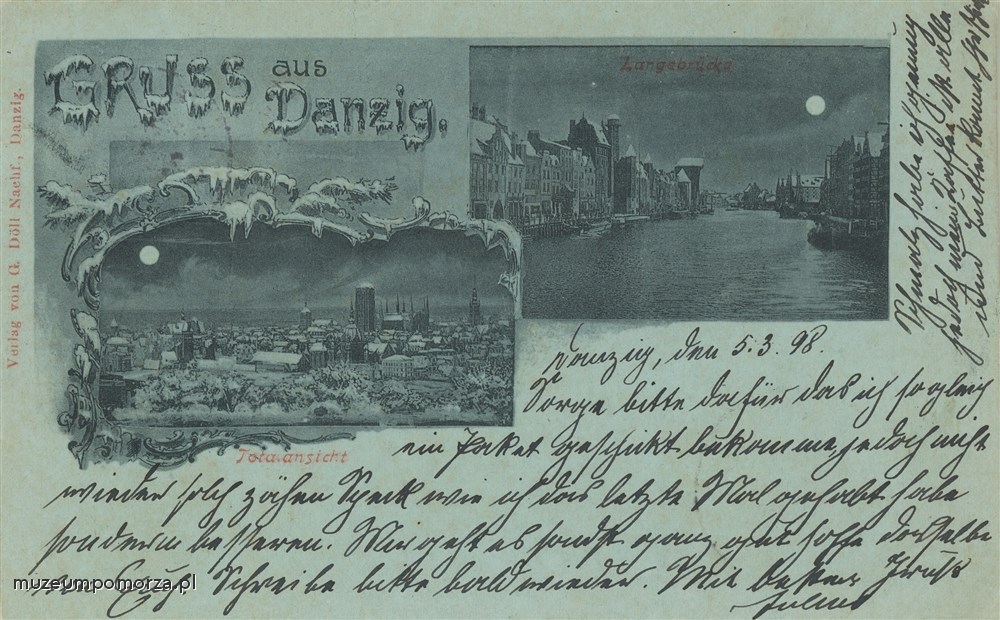 GRUSS aus
Danzig.
Langebrücke
Totalansicht
Verlag von G. Döll Nachf., Danzig.
Danzig, den 5.3.98.
Sorge bitte dafür das ich sogleich
ein Paket geschickt bekomme, jedoch nicht
wieder solch zähen Speck wie ich das letzte Mal gehabt habe
sondern besseren. Mir geht es sonst ganz gut hoffe dasselbe
von Euch Schreibe bitte bald wieder. Mit bester Gruß
Julius
Schmalz habe ich
jedoch
und
muzeumpomorza.pl